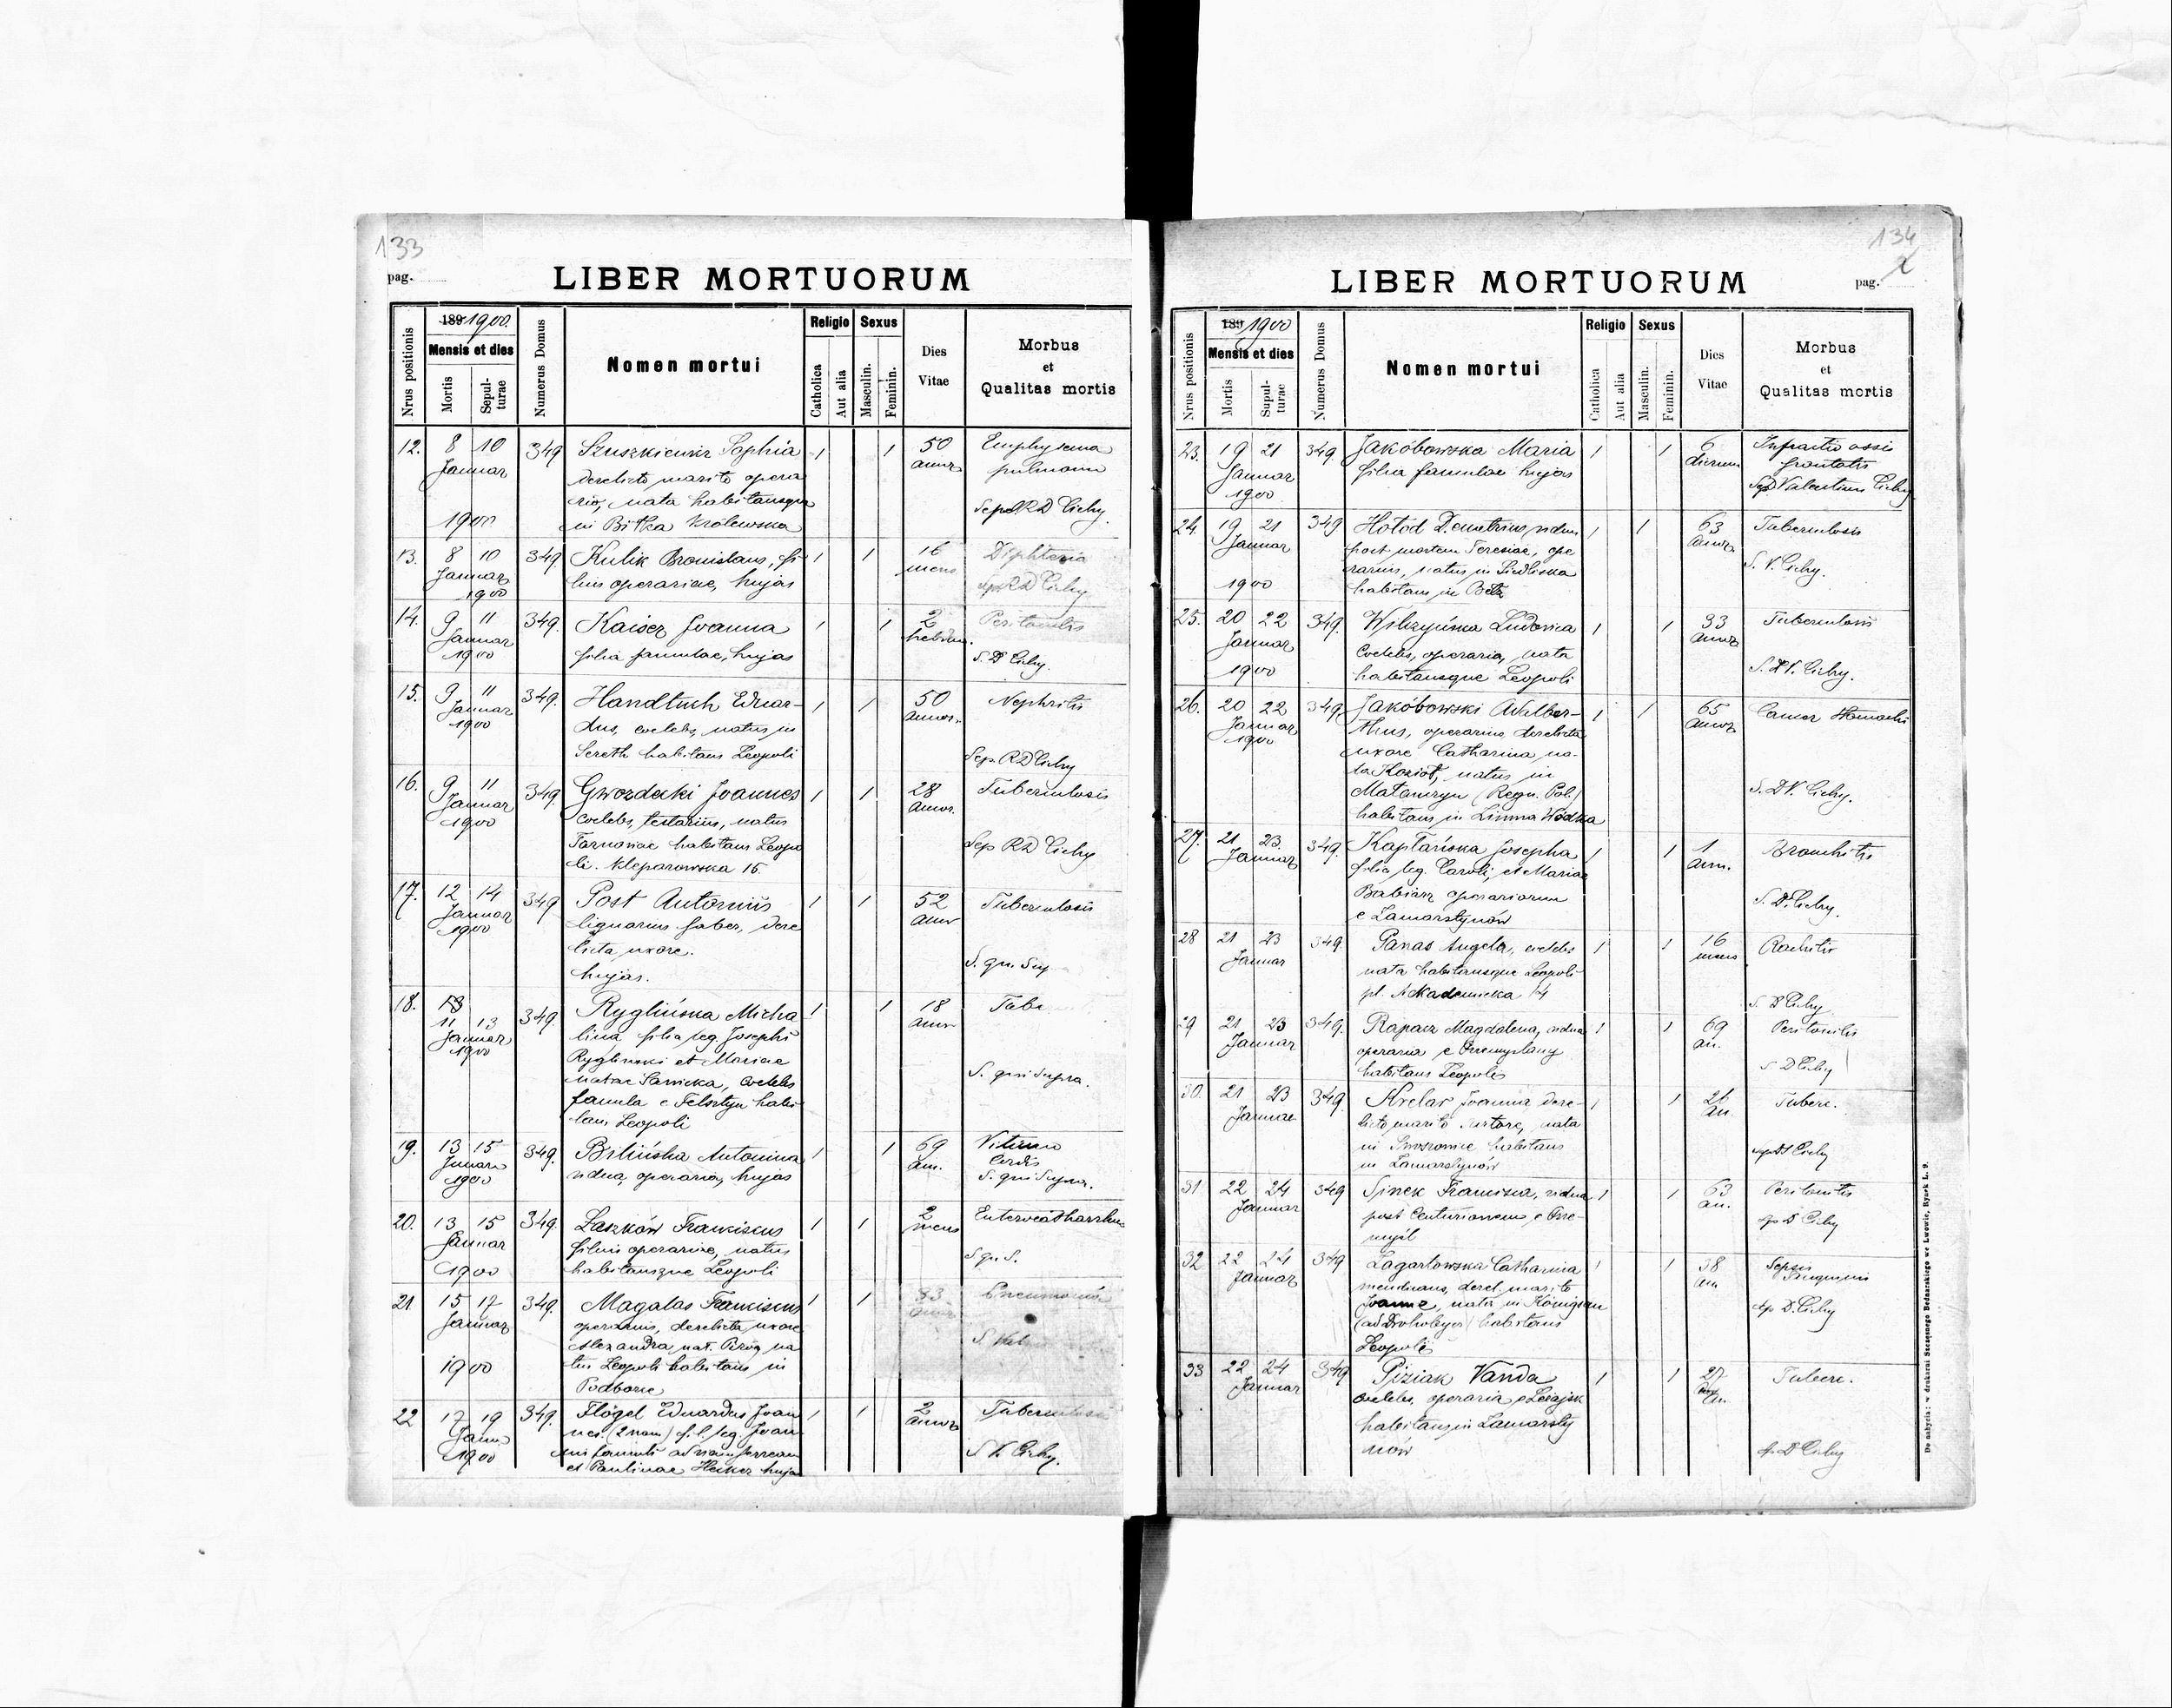 133
pag.
LIBER MORTUORUM
Nrus positionis
189 1900.
Mensis et dies
Mortis
Sepul-
turae
Numerus Domus
Nomen mortui
Religio
Catholica
Aut alia
Sexus
Masculin.
Feminin.
Dies
Vitae
Morbus
et
Qualitas mortis
12. 8 10 349 Szuszkiewicz Sophia 1 1 50 Emphysema
Januar derelicto marito opera annor pulmonum
rio, nata habitansque Sep. RD Cichy.
1900 in Biłka Królewska
13. 8 10 349 Kulik Bronislaus, fi- 1 1 16 Diphteria
Januar lius operariae, hujas mens
1900 RD Cichy
14. 9 11 349. Kaiser Joanna 1 1 2 Peritonitis
Januar filia famulae, hujas hebdom.
1900 S. D Cichy.
15. 9 11 349. Handtuch Eduar- 1 1 50 Nephritis
Januar dus, coelebs, natus in annor.
1900 Sereth habitans Leopoli
Sep RD Cichy
16. 9 11 349 Gwozdecki Joannes 1 1 28 Tuberculosis
Januar coelebs, testarius, natus annor.
1900 Tarnoviae habitans Leopo
li. Kleparowska 15. Sep RD Cichy
17. 12 14 349 Post Antonius 1 1 52 Tuberculosis
Januar lignarius faber, dere annor
1900 licta uxore.
hujas. S. qu. Sup.
18. 13
11 13 349 Ryglińska Micha 1 1 18 Tube
Januar lina filia leg. Josephi annor
1900 Ryglinski et Mariae
natae Sanicka, coelebs S. qui supra.
famula e Felsztyn habi
tans Leopoli
19. 13 15 349. Bilińska Antonina 1 1 69 Vitium
Januar vidua, operaria, hujas an. Cordis
1900 S. qui Supra.
20. 13 15 349. Laszków Franciscus 1 1 2 Enterocatharrhus
Januar filius operariae, natus mens
1900 habitansque Leopoli S. qu. S.
21 15 17 349. Magalas Franciscus 1 1 Pneumonia
Januar operarius, derelicta uxore
Alexandra nat. na
1900 tus Leopoli habitans in
Podborce
22 17 19 349. Flögel Eduardus Joan 1 1 2 Tuberculosis
Janu. nes. (2 nom) fil. leg. Joan annor
1900 nis ad viam ferream S. V. Cichy.
et Paulinae hujas
134
2
pag.
LIBER MORTUORUM
Nrus positionis
189 1900
Mensis et dies
Mortis
Sepul-
turae
Numerus Domus
Nomen mortui
Religio
Catholica
Aut alia
Sexus
Masculin.
Feminin.
Dies
Vitae
Morbus
et
Qualitas mortis
23. 19 21 349. Jakóbowska Maria 1 1 6 Infractio ossis
Januar filia famulae hujas dierum
1900 Valentinus Cichy
24. 19 21 349 Hołod Demetrius, viduus 1 1 63 Tuberculosis
Januar post mortem Teresiae, ope annor
rarius, natus in Siedliska S. V. Cichy.
1900 habitans in Bełz
25. 20 22 349. Wilczyńska Ludovica 1 1 33 Tuberculosis
Januar coelebs, operaria, nata annor
1900 habitansque Leopoli S. D V. Cichy.
26. 20 22 349. Jakóbowski Adalber- 1 1 65 Cancer stomachi
Januar thus, operarius derelicta annor
1900 uxore Catharina na-
ta Kozioł, natus in
(Regn. Pol.) S. D V. Cichy.
habitans in Winna Wódka
27. 21 23. 349. Kaptańska Josepha 1 1 1 Bronchitis
Januar filia leg. Caroli, et Mariae ann.
Babiarz operariorum S. D. Cichy.
e Zamarstynów
28 21 23 349. Panas Angela, coelebs 1 1 16 Rachitis
Januar nata habitansque Leopoli mens
pl. Akademicka 14 S. D Cichy
29 21 23 349. Rapacz Magdalena, vidua 1 1 69 Peritonitis
Januar operaria e Przemyślany an.
habitans Leopoli S D Cichy
30. 21 23 349. Joanna dere- 1 1 26 Tuberc.
Januar licto marito sartore, nata an.
in habitans Cichy
in Zamarstynów
31 22 24 349 Sinek Francisca, vidua 1 1 63 Peritonitis
Januar post Centurionem e Prze- an.
myśl D Cichy
32 22 24 349 Zagartowska Catharina 1 1 38 Sepsis
Januar mendicans, derel. marito an.
Joanne, nata in Königsau D. Cichy
(ad Drohobycz) habitans
Leopoli
33 22 24 349 Piziak Vanda 1 1 27 Tuberc.
Januar coelebs, operaria e Leżajsk an.
habitans in Zamarsty
nów D Cichy
Do nabycia: w drukarni Szczęsnego Bednarskiego we Lwowie, Rynek L. 9.